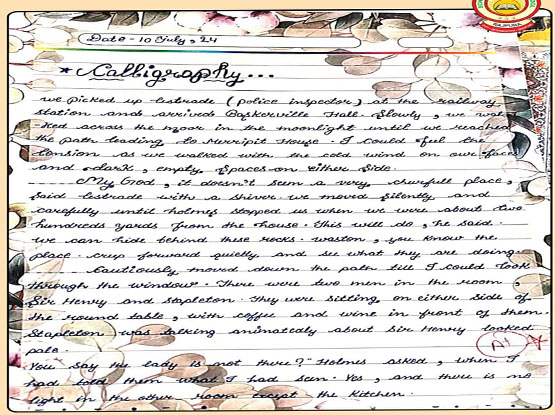 Date - 10 July, 24
* Calligraphy...
we picked up lestrade (police inspector) at the railway
station and arrived Baskerville Hall. Slowly, we wal
-ked across the moor in the moonlight until we reached
the path leading to Merripit House. I could feel the
tension as we walked with the cold wind on our face
and dark, empty spaces on either side.
My God, it doesn't seem a very cheerfull place,
said lestrade with a shiver. we moved silently and
carefully until holmes stopped us when we were about two
hundreds yards from the house. This will do, he said.
we can hide behind these rocks. waston, you know the
place. creep forward quietly and see what they are doing
Cautiously moved down the path till I could look
through the window. There were two men in the room,
Sir Henry and Stapleton. They were sitting on either side of
the round table, with coffee and wine in front of them.
Stapleton was talking animatedly about Sir Henry looked
pale.
A1
You say the lady is not there?" Holmes asked, when I
had told them what I had seen. Yes, and there is no
light in the other room except the kitchen.